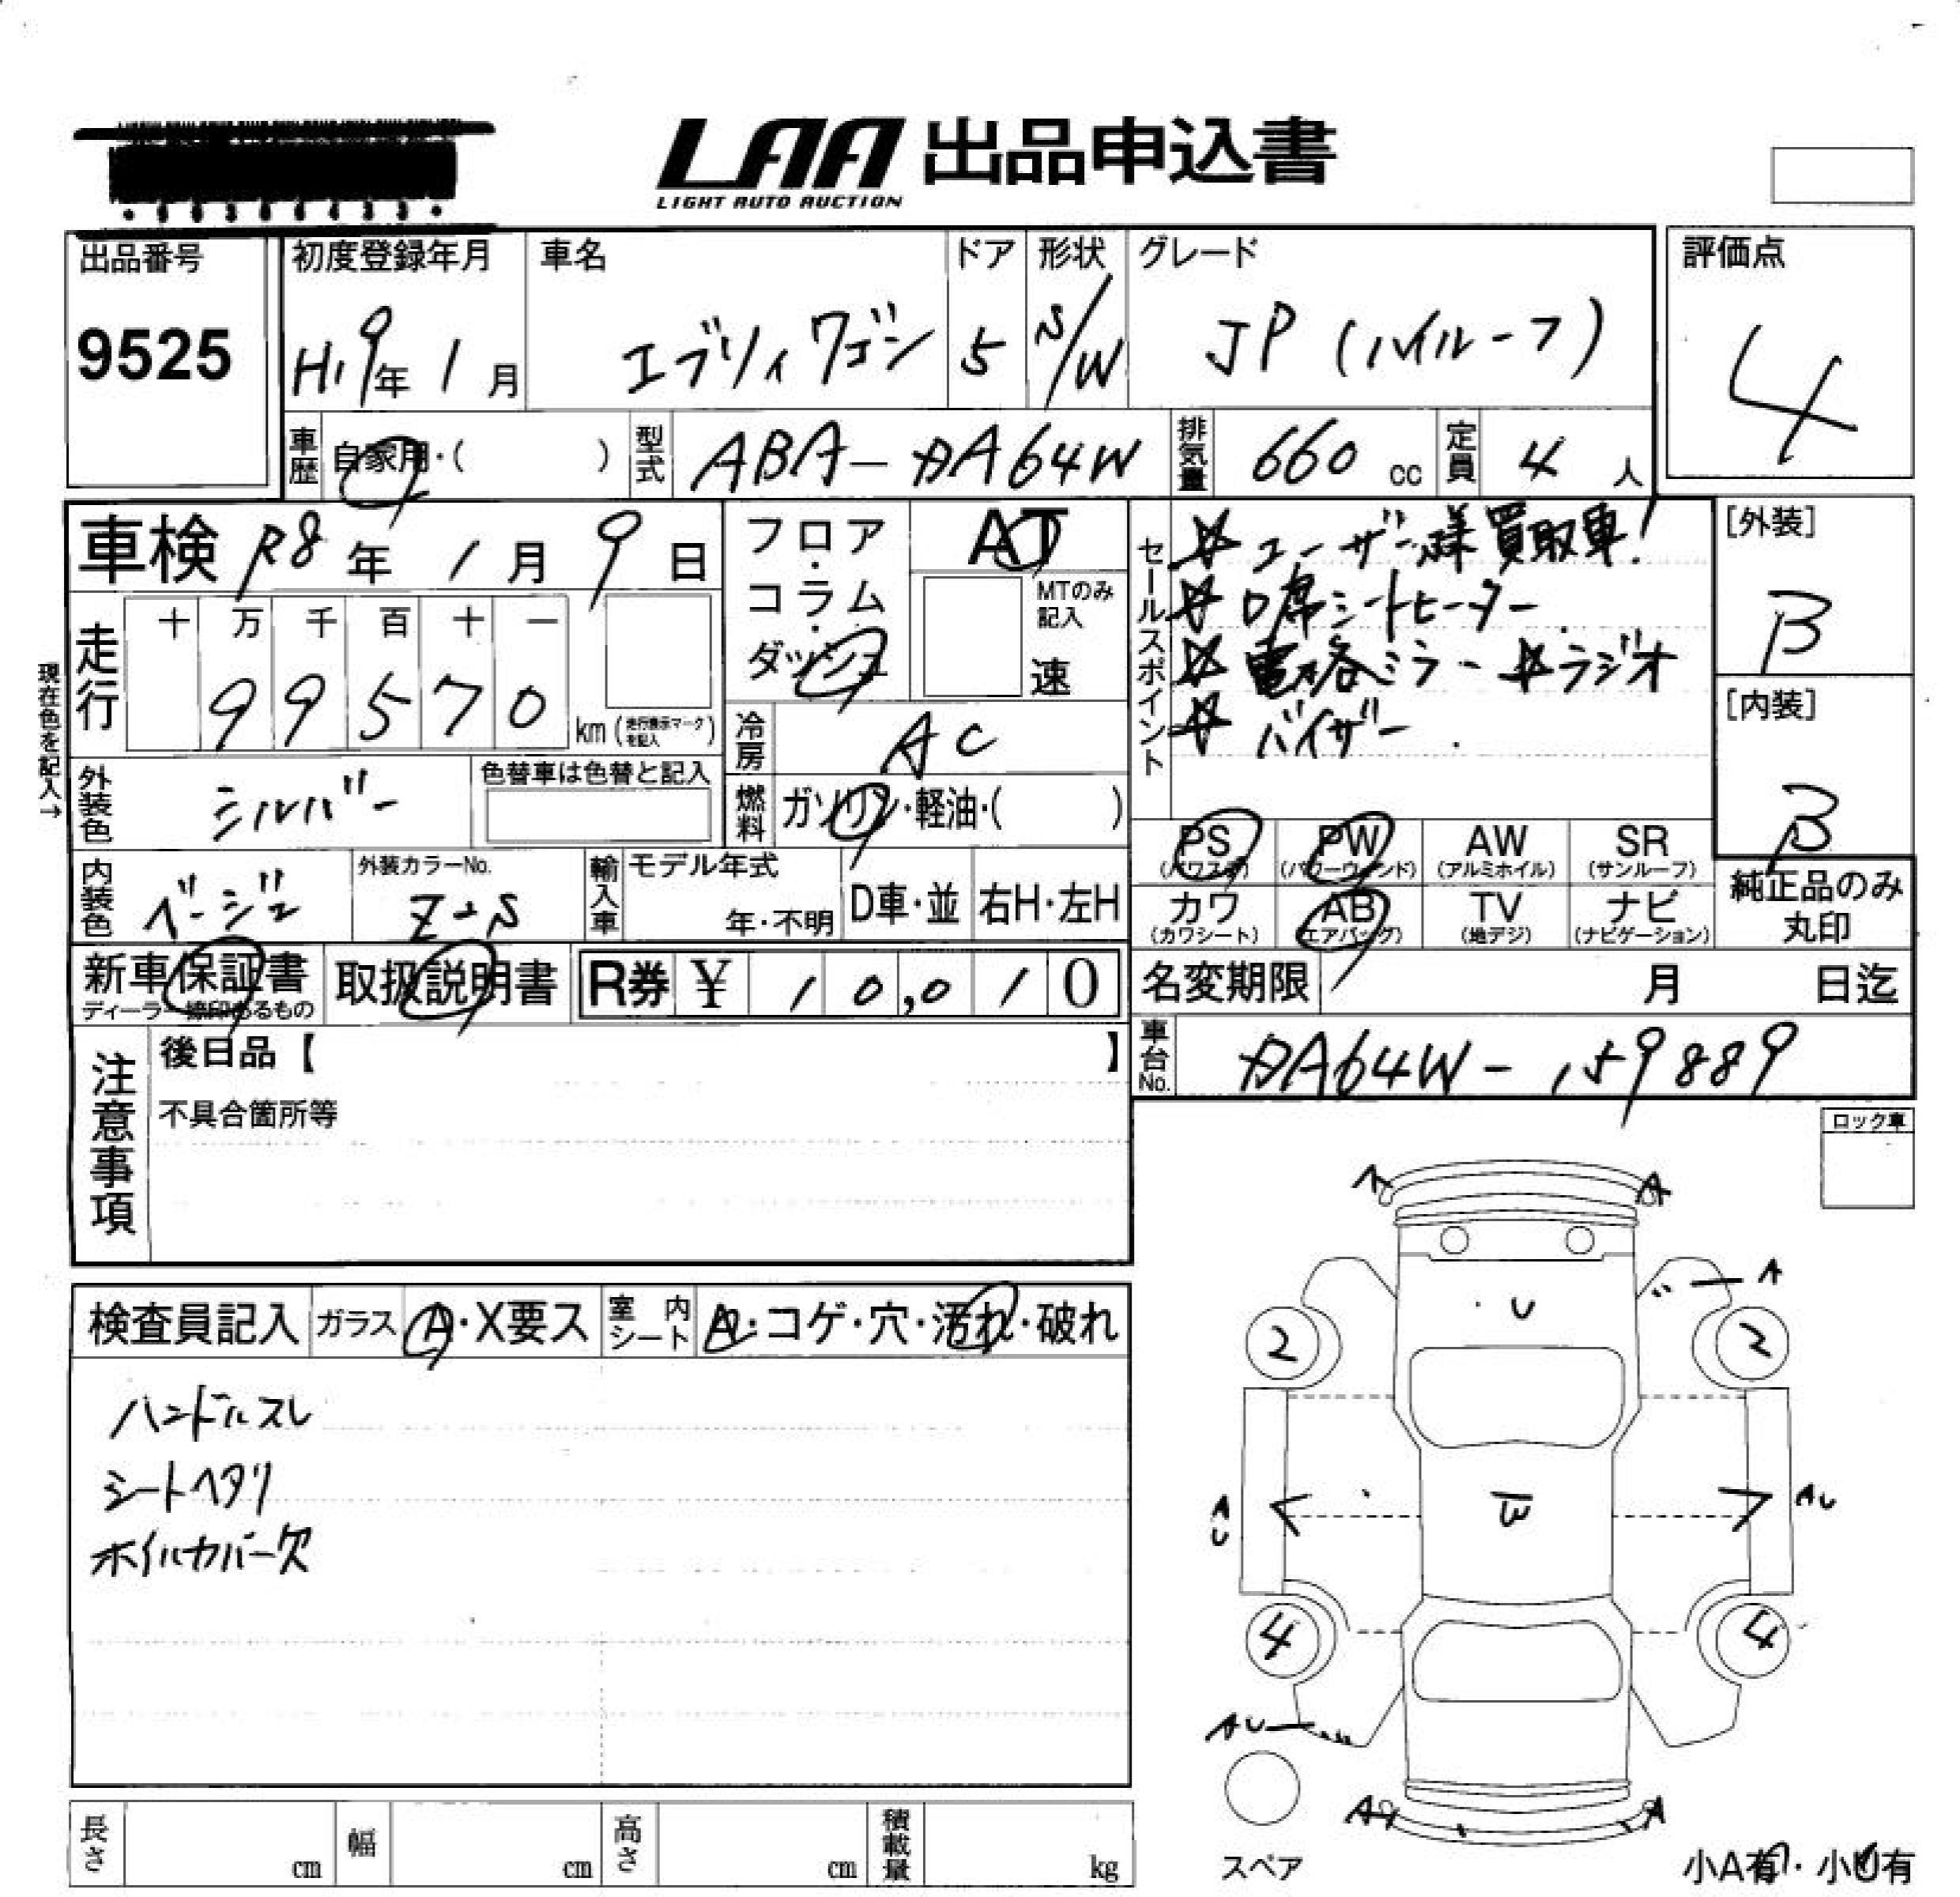 LAA 出品申込書
LIGHT AUTO AUCTION
出品番号
9525
初度登録年月
H19年 1月
車名
エブリィワゴン
ドア
5
形状
S/W
グレード
JP (ハイルーフ)
評価点
4
車歴 自家用・( )
型式 ABA-DA64W
排気量 660 cc
定員 4 人
車検 R8年 1月 9日
フロア・コラム・ダッシュ
AT
MTのみ記入
速
走行
十 万 千 百 十 一
9 9 5 7 0 km (走行表示マークを記入)
現在色を記入→
冷房 AC
外装色 シルバー
色替車は色替と記入
燃料 ガソリン・軽油・( )
内装色 ベージュ
外装カラーNo.
Z2S
輸入車 モデル年式
年・不明
D車・並
右H・左H
セールスポイント
☆ユーザー様買取車!
☆D席シートヒーター
☆電格ミラー ☆ラジオ
☆バイザー
[外装]
B
[内装]
B
PS (パワステ)
PW (パワーウィンド)
AW (アルミホイル)
SR (サンルーフ)
カワ (カワシート)
AB (エアバッグ)
TV (地デジ)
ナビ (ナビゲーション)
純正品のみ丸印
新車保証書
ディーラー捺印あるもの
取扱説明書
R券 ¥ 10,010
名変期限 月 日迄
車台No. DA64W-159889
注意事項
後日品【 】
不具合箇所等
ロック車
検査員記入
ガラス A・X要ス
室内シート A・コゲ・穴・汚れ・破れ
ハンドルスレ
シートヘタリ
ホイルカバー欠
A A
A
U
2 2
AU AU
4 4
AU
A A
スペア
小A有・小U有
長さ cm
幅 cm
高さ cm
積載量 kg